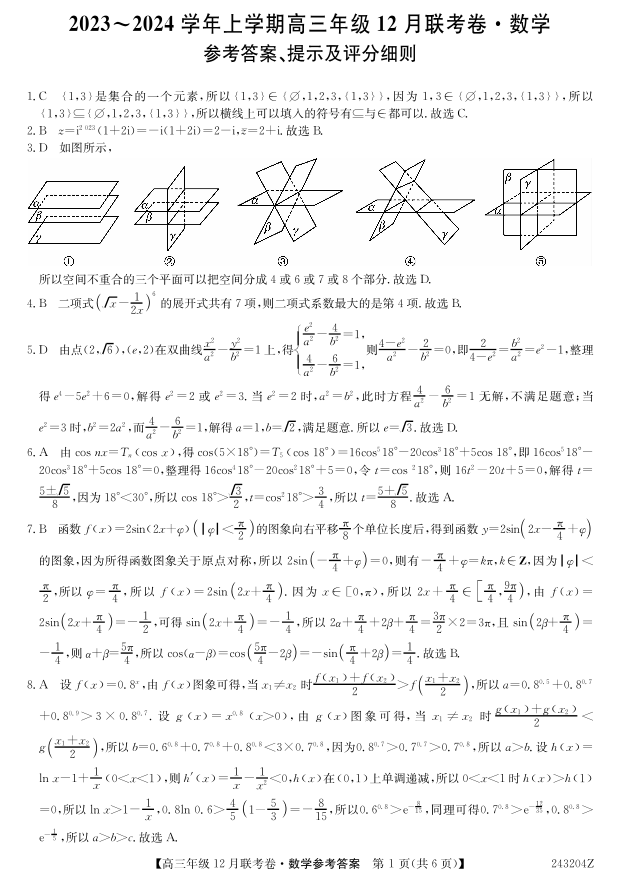 2023～2024 学年上学期高三年级 12 月联考卷·数学
参考答案、提示及评分细则
1. C {1,3}是集合的一个元素,所以{1,3}∈{∅,1,2,3,{1,3}},因为 1,3∈{∅,1,2,3,{1,3}},所以
{1,3}⊆{∅,1,2,3,{1,3}},所以横线上可以填入的符号有⊆与∈都可以.故选 C.
2. B z=i^{2 023}(1+2i)=-i(1+2i)=2-i,z̄=2+i.故选 B.
3. D 如图所示,
α β γ α β γ α β γ α β γ α β γ
① ② ③ ④ ⑤
所以空间不重合的三个平面可以把空间分成 4 或 6 或 7 或 8 个部分.故选 D.
4. B 二项式(√x-1/(2x))^4 的展开式共有 7 项,则二项式系数最大的是第 4 项.故选 B.
5. D 由点(2,√6),(e,2)在双曲线x²/a²-y²/b²=1 上,得{e²/a²-4/b²=1, 4/a²-6/b²=1,则(4-e²)/a²-2/b²=0,即2/(4-e²)=b²/a²=e²-1,整理
得 e⁴-5e²+6=0,解得 e²=2 或 e²=3.当 e²=2 时,a²=b²,此时方程4/a²-6/b²=1 无解,不满足题意;当
e²=3 时,b²=2a²,而4/a²-6/b²=1,解得 a=1,b=√2,满足题意.所以 e=√3.故选 D.
6. A 由 cos nx=T_n(cos x),得 cos(5×18°)=T₅(cos 18°)=16cos⁵18°-20cos³18°+5cos 18°,即 16cos⁵18°-
20cos³18°+5cos 18°=0,整理得 16cos⁴18°-20cos²18°+5=0,令 t=cos ²18°,则 16t²-20t+5=0,解得 t=
(5±√5)/8,因为 18°<30°,所以 cos 18°>√3/2,t=cos²18°>3/4,所以 t=(5+√5)/8.故选 A.
7. B 函数 f(x)=2sin(2x+φ)(|φ|<π/2)的图象向右平移π/8个单位长度后,得到函数 y=2sin(2x-π/4+φ)
的图象,因为所得函数图象关于原点对称,所以 2sin(-π/4+φ)=0,则有-π/4+φ=kπ,k∈Z,因为|φ|<
π/2,所以 φ=π/4,所以 f(x)=2sin(2x+π/4).因为 x∈[0,π),所以 2x+π/4∈[π/4,9π/4),由 f(x)=
2sin(2x+π/4)=-1/2,可得 sin(2x+π/4)=-1/4,所以 2α+π/4+2β+π/4=3π/2×2=3π,且 sin(2β+π/4)=
-1/4,则 α+β=5π/4,所以 cos(α-β)=cos(5π/4-2β)=-sin(π/4+2β)=1/4.故选 B.
8. A 设 f(x)=0.8^x,由 f(x)图象可得,当 x₁≠x₂ 时(f(x₁)+f(x₂))/2>f((x₁+x₂)/2),所以 a=0.8^{0.5}+0.8^{0.7}
+0.8^{0.9}>3×0.8^{0.7}.设 g(x)=x^{0.8}(x>0),由 g(x)图象可得,当 x₁≠x₂ 时(g(x₁)+g(x₂))/2<
g((x₁+x₂)/2),所以 b=0.6^{0.8}+0.7^{0.8}+0.8^{0.8}<3×0.7^{0.8},因为0.8^{0.7}>0.7^{0.7}>0.7^{0.8},所以 a>b.设 h(x)=
ln x-1+1/x(0<x<1),则 h′(x)=1/x-1/x²<0,h(x)在(0,1)上单调递减,所以 0<x<1 时 h(x)>h(1)
=0,所以 ln x>1-1/x,0.8ln 0.6>4/5(1-5/3)=-8/15,所以0.6^{0.8}>e^{-8/15},同理可得0.7^{0.8}>e^{-12/35},0.8^{0.8}>
e^{-1/5},所以 a>b>c.故选 A.
【高三年级 12 月联考卷·数学参考答案 第 1 页(共 6 页)】 243204Z